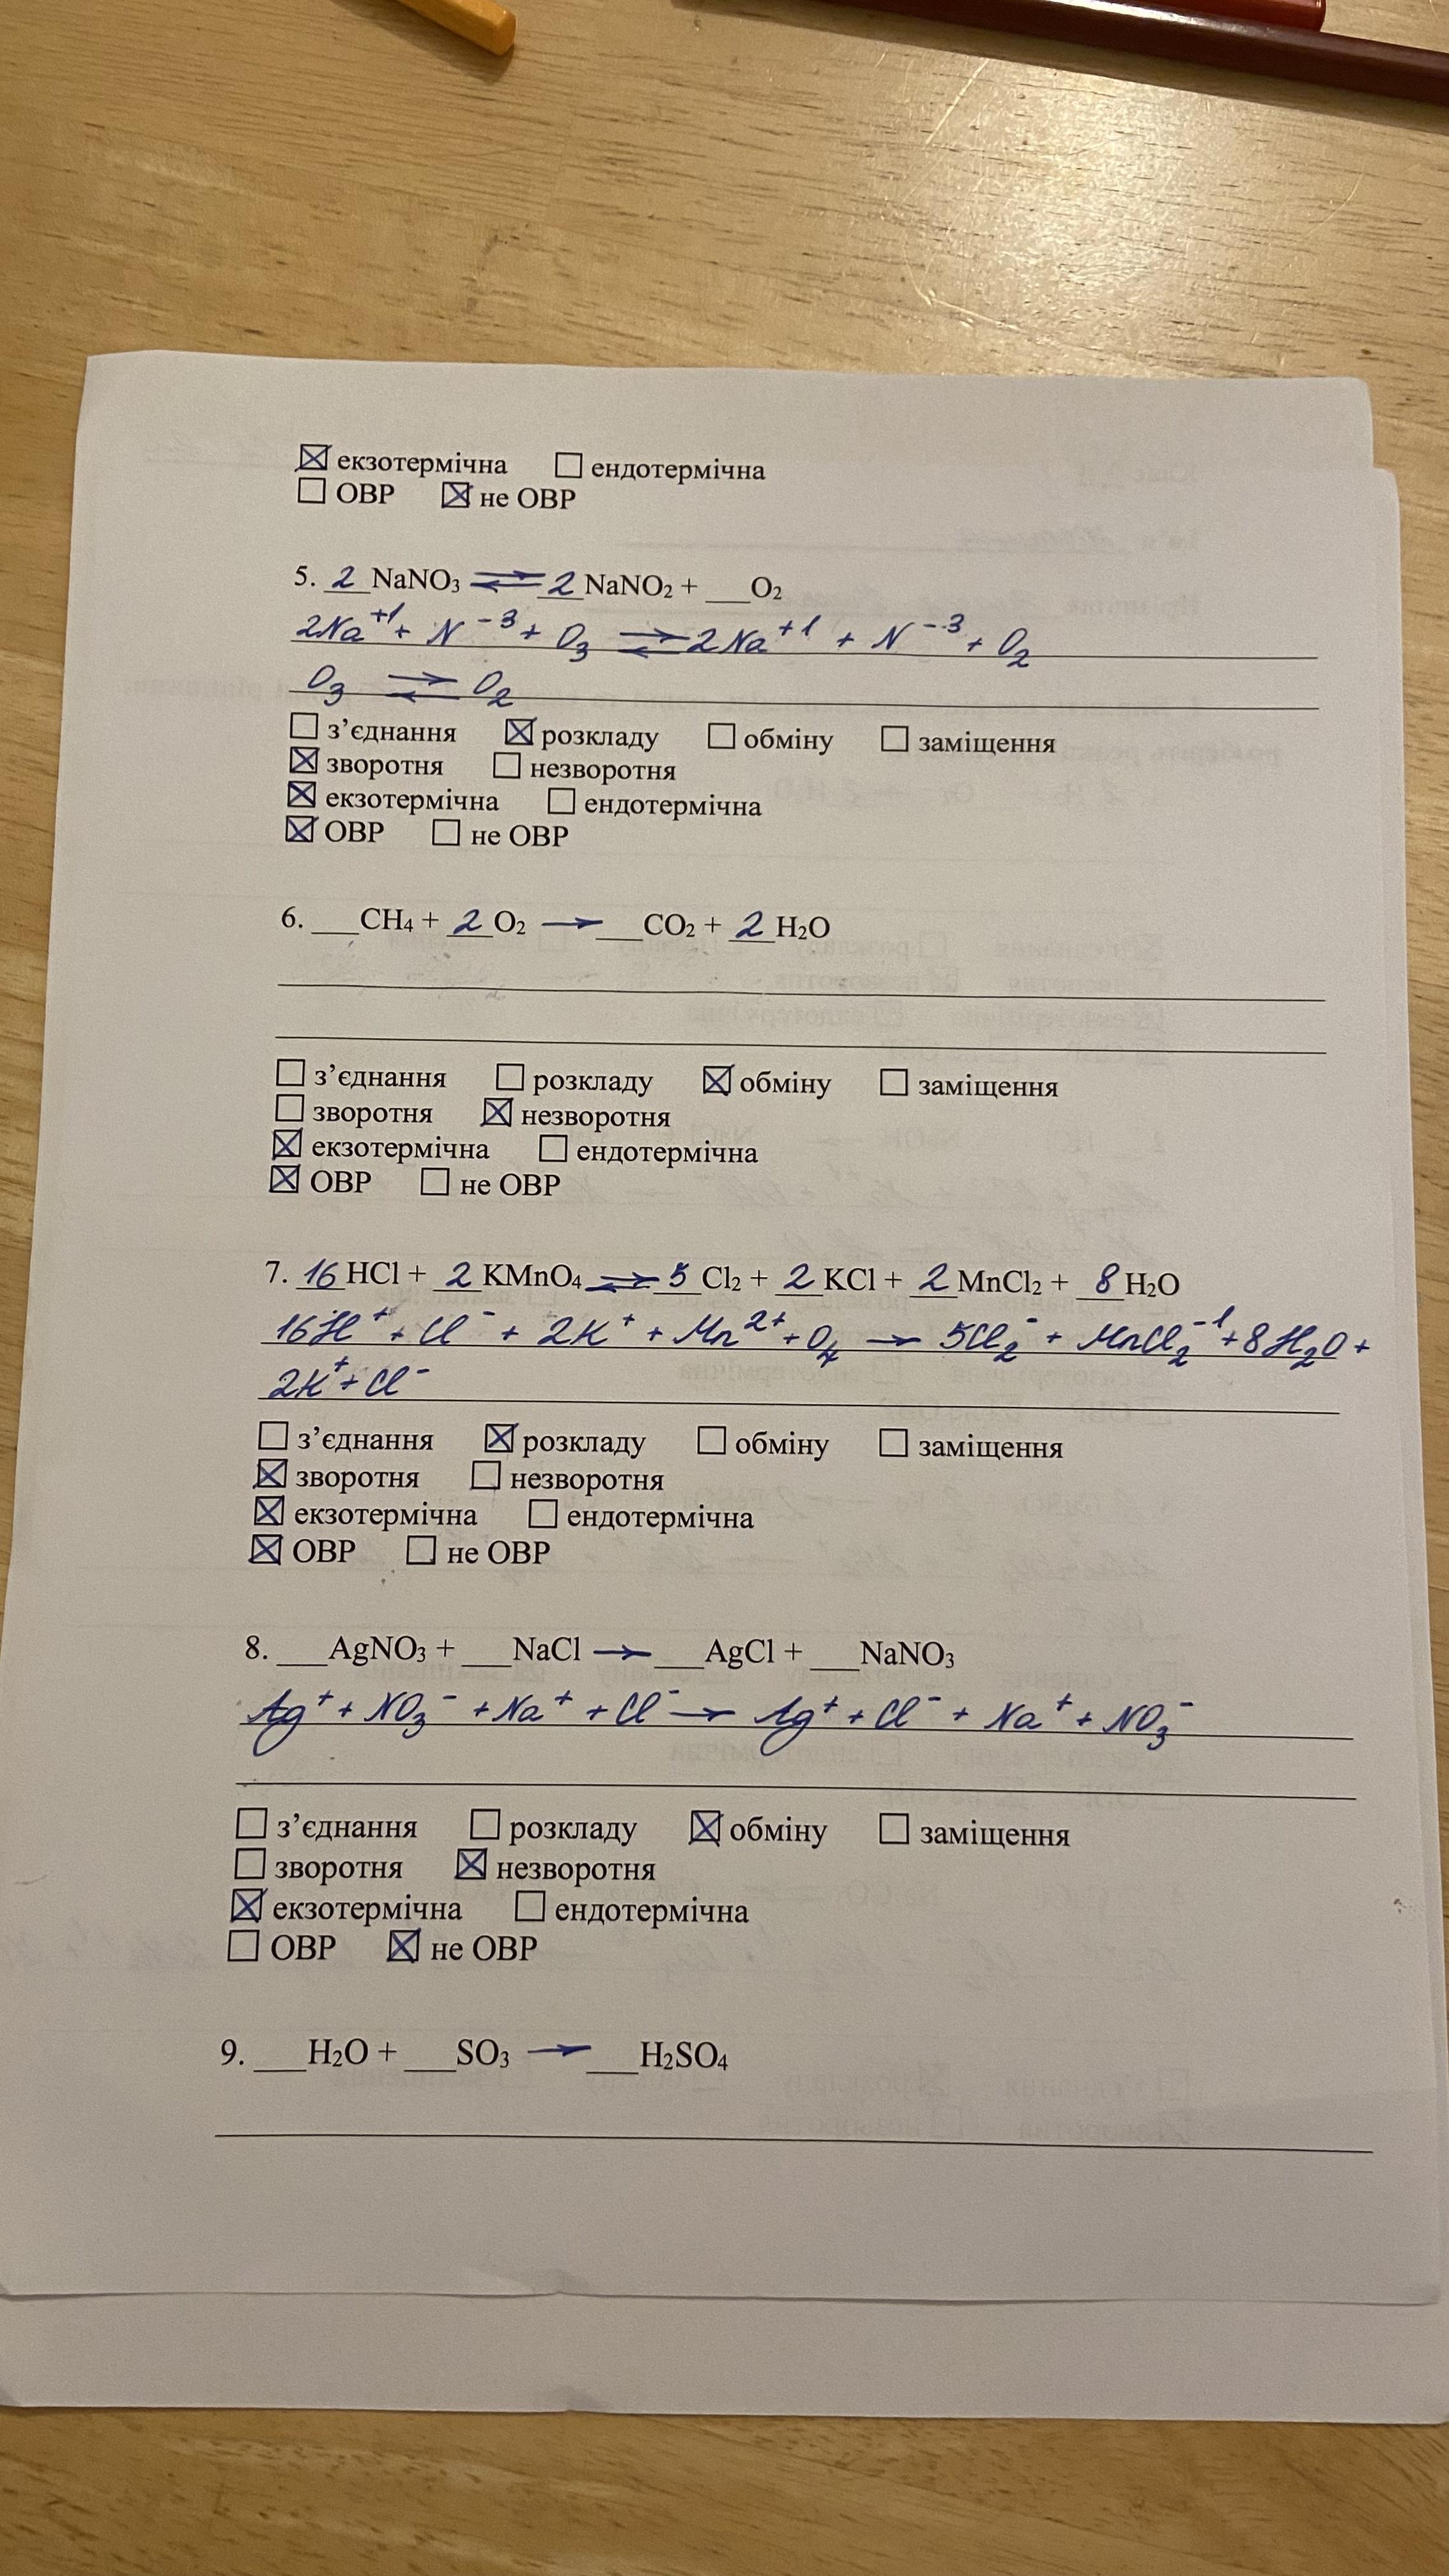 ☒ екзотермічна ☐ ендотермічна
☐ ОВР ☒ не ОВР
5. 2 NaNO₃ ⇌ 2 NaNO₂ + ___O₂
2Na⁺¹ + N⁻³ + O₃ ⇌ 2Na⁺¹ + N⁻³ + O₂
O₃ ⇌ O₂
☐ з’єднання ☒ розкладу ☐ обміну ☐ заміщення
☒ зворотня ☐ незворотня
☒ екзотермічна ☐ ендотермічна
☒ ОВР ☐ не ОВР
6. ___CH₄ + 2 O₂ → ___CO₂ + 2 H₂O
☐ з’єднання ☐ розкладу ☒ обміну ☐ заміщення
☐ зворотня ☒ незворотня
☒ екзотермічна ☐ ендотермічна
☒ ОВР ☐ не ОВР
7. 16 HCl + 2 KMnO₄ ⇌ 5 Cl₂ + 2 KCl + 2 MnCl₂ + 8 H₂O
16H⁺ + Cl⁻ + 2K⁺ + Mn²⁺ + O₄ → 5Cl₂⁻ + MnCl₂⁻¹ + 8H₂O +
2K⁺ + Cl⁻
☐ з’єднання ☒ розкладу ☐ обміну ☐ заміщення
☒ зворотня ☐ незворотня
☒ екзотермічна ☐ ендотермічна
☒ ОВР ☐ не ОВР
8. ___AgNO₃ + ___NaCl → ___AgCl + ___NaNO₃
Ag⁺ + NO₃⁻ + Na⁺ + Cl⁻ → Ag⁺ + Cl⁻ + Na⁺ + NO₃⁻
☐ з’єднання ☐ розкладу ☒ обміну ☐ заміщення
☐ зворотня ☒ незворотня
☒ екзотермічна ☐ ендотермічна
☐ ОВР ☒ не ОВР
9. ___H₂O + ___SO₃ → ___H₂SO₄